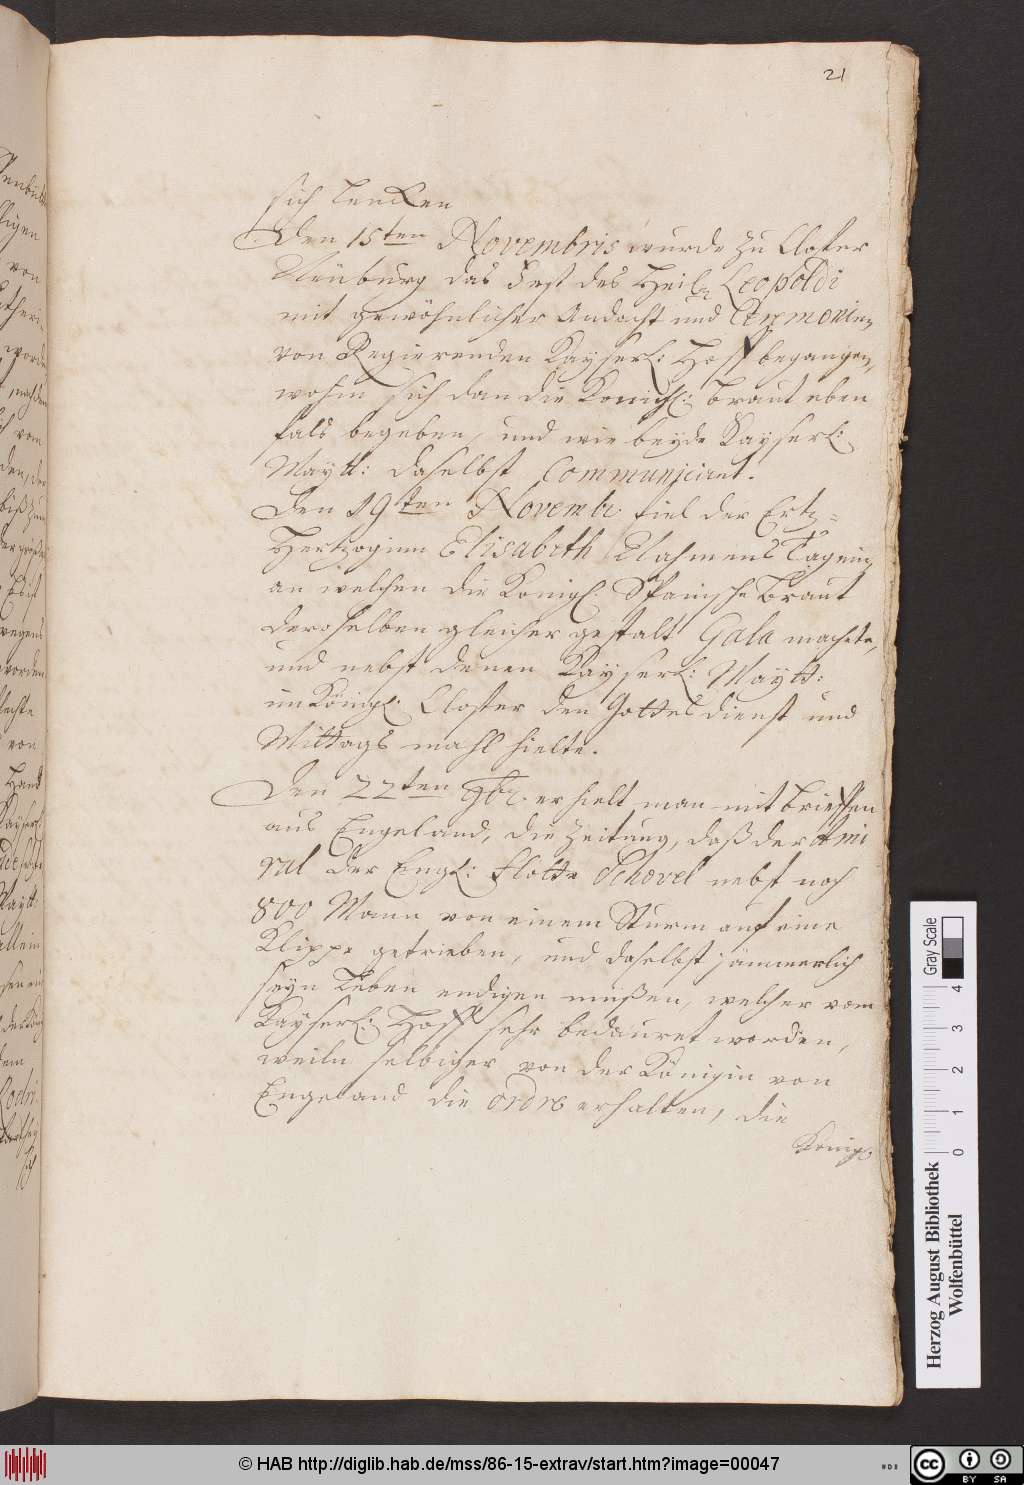 21
sich lencken
Den 15ten Novembris wurde zu Closter
Neüburg das Fest des Heilg Leopoldi
mit gewöhnlicher Andacht und Ceremonien
von Regierenden Kayserl: Hoff begangen,
wohin sich dan die Königl: Braut eben
fals begeben, und wie beyde Kayserl:
Maytt: daselbst Communiciret.
Den 19ten Novembr fiel der Ertz-
Hertzoginn Elisabeth Nahmens Tag ein,
an welchen die Königl: Spanische Braut
deroselben gleicher gestalt Gala machete,
und nebst denen Kayserl: Maytt:
im Königl. Closter den Gottesdienst und
Mittags mahl hielte.
Den 22ten 9br. erhielt man mit Brieffen
aus Engeland, die Zeitung, daß der Ami
ral der Engl: Flotte Schovel nebst noch
800 Mann von einem Sturm auf eine
Klippe getrieben, und daselbst jämmerlich
seyn Leben endigen müßen, welcher vom
Kayserl: Hoff sehr bedauret worden,
weiln selbiger von der Königin von
Engeland die ordre erhalten, die
Königl:
Herzog August Bibliothek
Wolfenbüttel
Gray Scale
0 1 2 3 4
© HAB http://diglib.hab.de/mss/86-15-extrav/start.htm?image=00047
cc BY SA